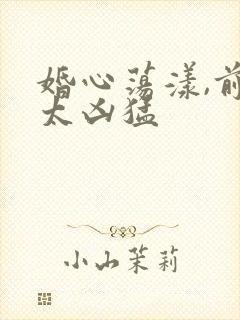 婚心荡漾,前
太凶猛
小山茉莉